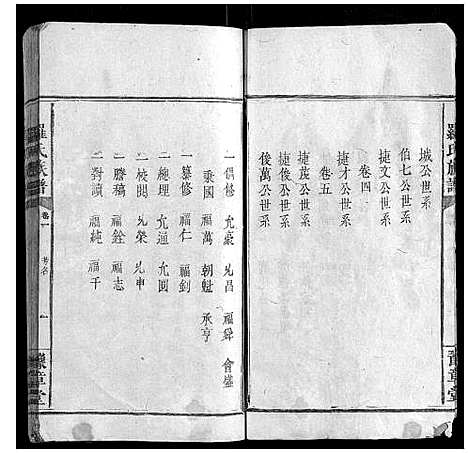 羅氏族譜
豫章堂
城公世系
伯七公世系
捷文公世系
卷四
捷才公世系
卷五
捷茂公世系
捷後公世系
後萬公世系
一倡修 允豪 兆昌 福舜 會盛
秉國 福萬 朝魁 承亨
一纂修 福仁 福釗
一總理 允通 允圓
一校閱 兆榮 兆申
一謄稿 福銓 福志
一對讀 福純 福千
羅氏族譜 卷一 一
豫章堂